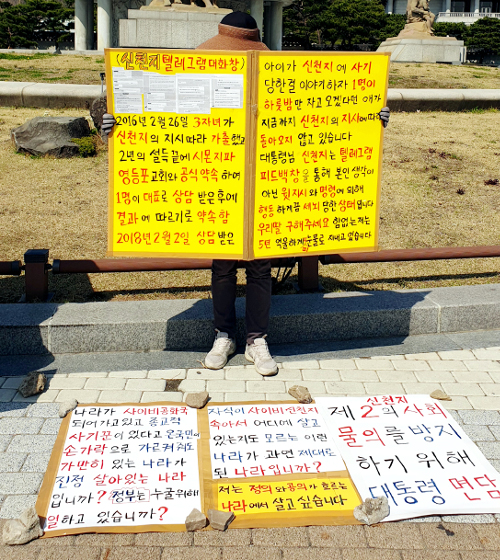 (신천지텔레그램대화창)
2016년 2월 26일 3자녀가
신천지의 지시따라 가출했고
2년의 설득끝에 시몬지파
영등포교회와 공식약속 하여
1명이 대표로 상담 받은후에
결과에 따르기로 약속함
2018년 2월 2일 상담받은
아이가 신천지에 사기
당한걸 이야기하자 1명이
하룻밤만 자고 오겠다던 애가
지금까지 신천지의 지시에따라
돌아오지 않고 있습니다
대통령님 신천지는 텔레그램
피드백창을 통해 본인 생각이
아닌 윗지시와 명령에 의해
행동 하게끔 세뇌 당한상태입니다
우리딸 구해주세요 힘없는저는
5년 억울하게눈물로 지내고있습니다
나라가 사이비공화국
되어가고있고 종교적
사기꾼이 있다고 온국민이
손가락으로 가르켜줘도
가만히 있는 나라가
진정 살아있는 나라
입니까? 정부는누굴위해
일하고 있습니까?
자식이 사이비신천지
속아서 어디에 살고
있는지도 모르는 이런
나라가 과연 제대로
된 나라입니까?
저는 정의와공의가 흐르는
나라에서 살고싶습니다
신천지
제2의 사회
물의를 방지
하기 위해
대통령 면담